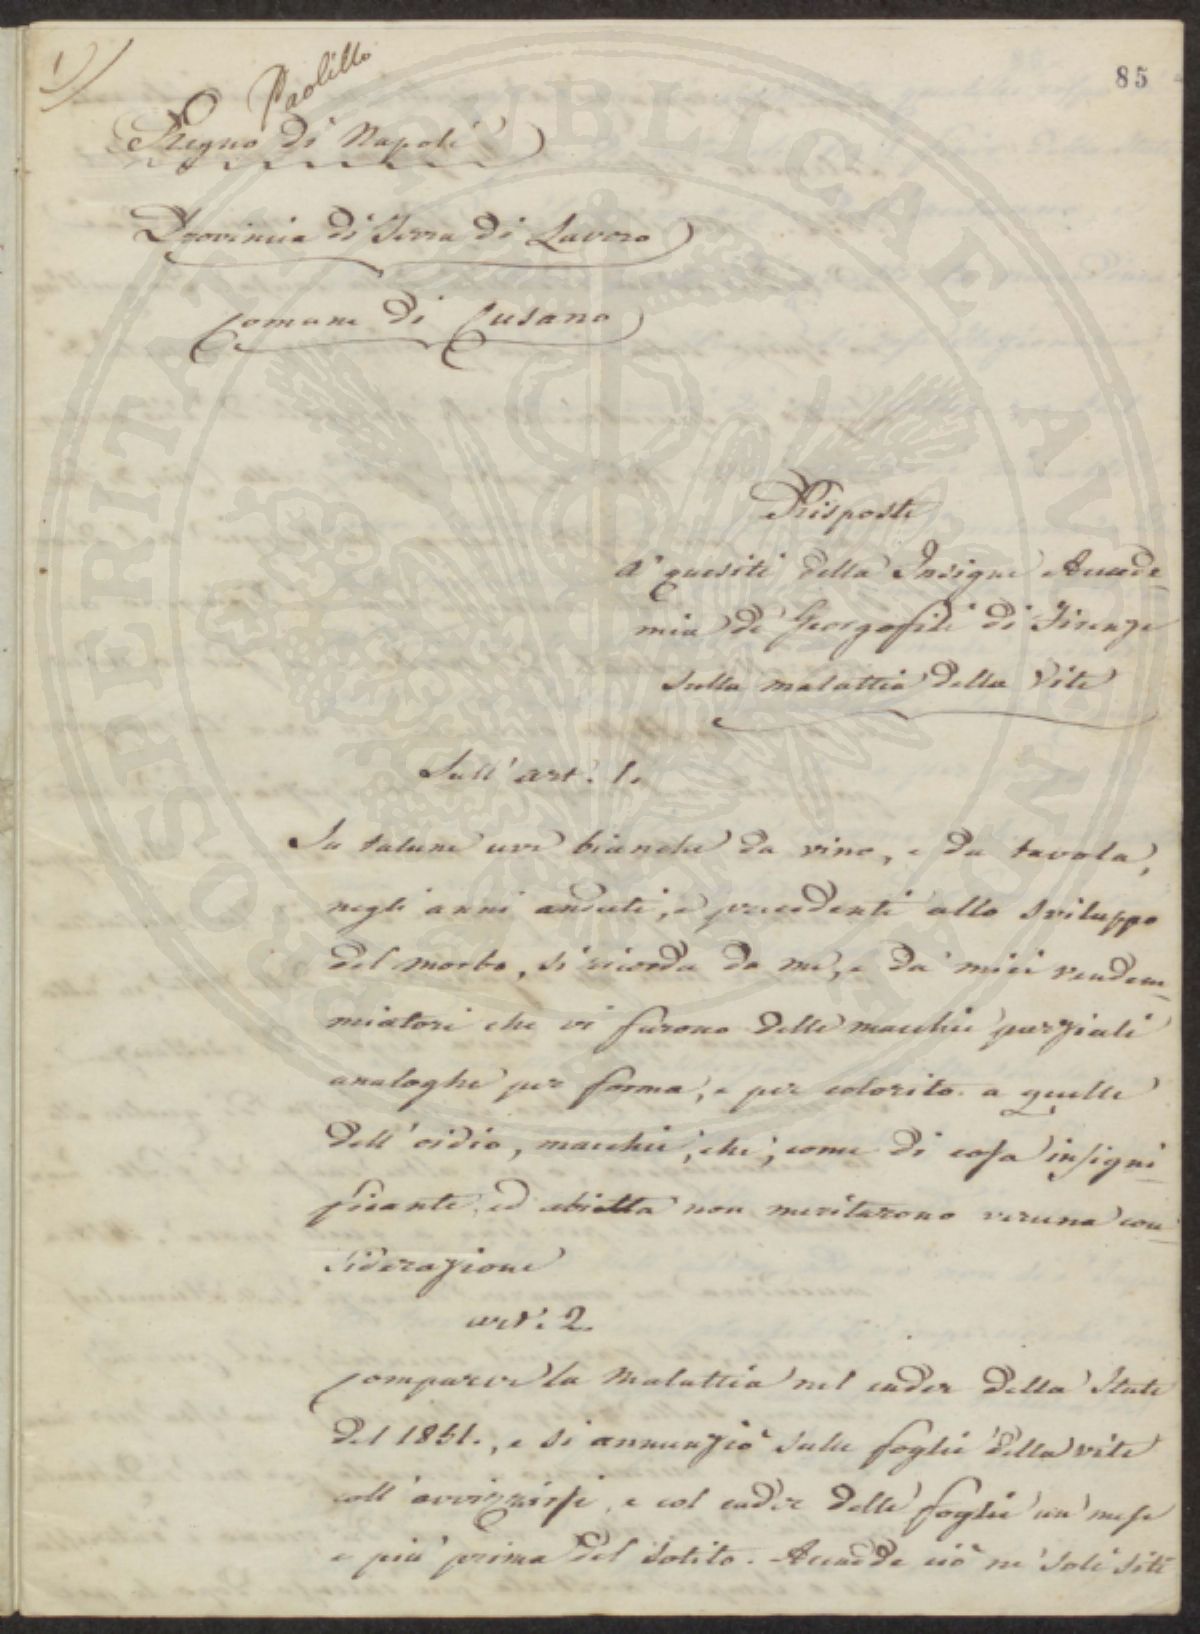 1)
Paolillo
85
Regno di Napoli
Provincia di Terra di Lavoro
Comune di Cusano
Risposte
a' quesiti della Insigne Accade-
mia de' Georgofili di Firenze
sulla malattia della Vite
Sull' art. 1.
In talune uve bianche da vino, e da tavola,
negli anni andati, e precedenti allo sviluppo
del morbo, si ricorda da me, e da' miei vendem-
miatori che vi furono delle macchie parziali
analoghe per forma, e per colorito a quelle
dell' oidio, macchie, che, come di cosa insigni-
ficante ed abietta non meritarono veruna con-
siderazione
art. 2.
Comparve la Malattia nel cader della State
del 1851., e si annunziò sulle foglie della vite
coll' avvizzirsi, e col cader delle foglie un mese
e più prima del solito. Accadde ciò ne' soli siti
PROSPERITATI PUBLICAE AUGENDAE